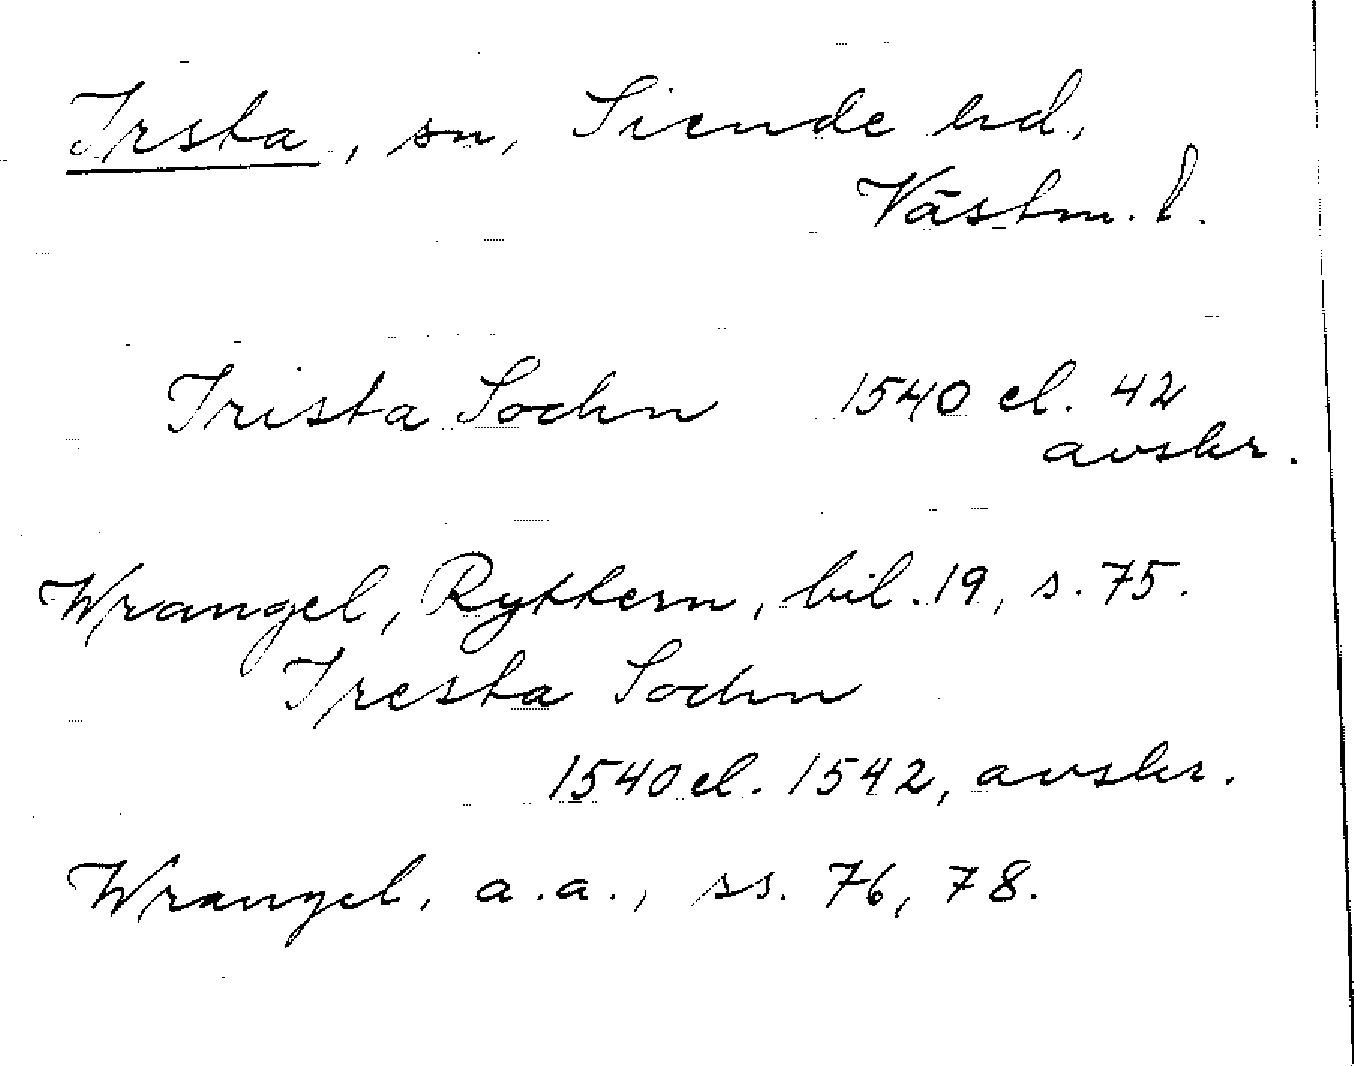 Irsta, sn, Siende hd,
Västm. l.
Irista Sochn 1540 el. 42
avskr.
Wrangel, Ryttern, bil. 19, s. 75.
Iresta Sochn
1540 el. 1542, avskr.
Wrangel, a.a., ss. 76, 78.